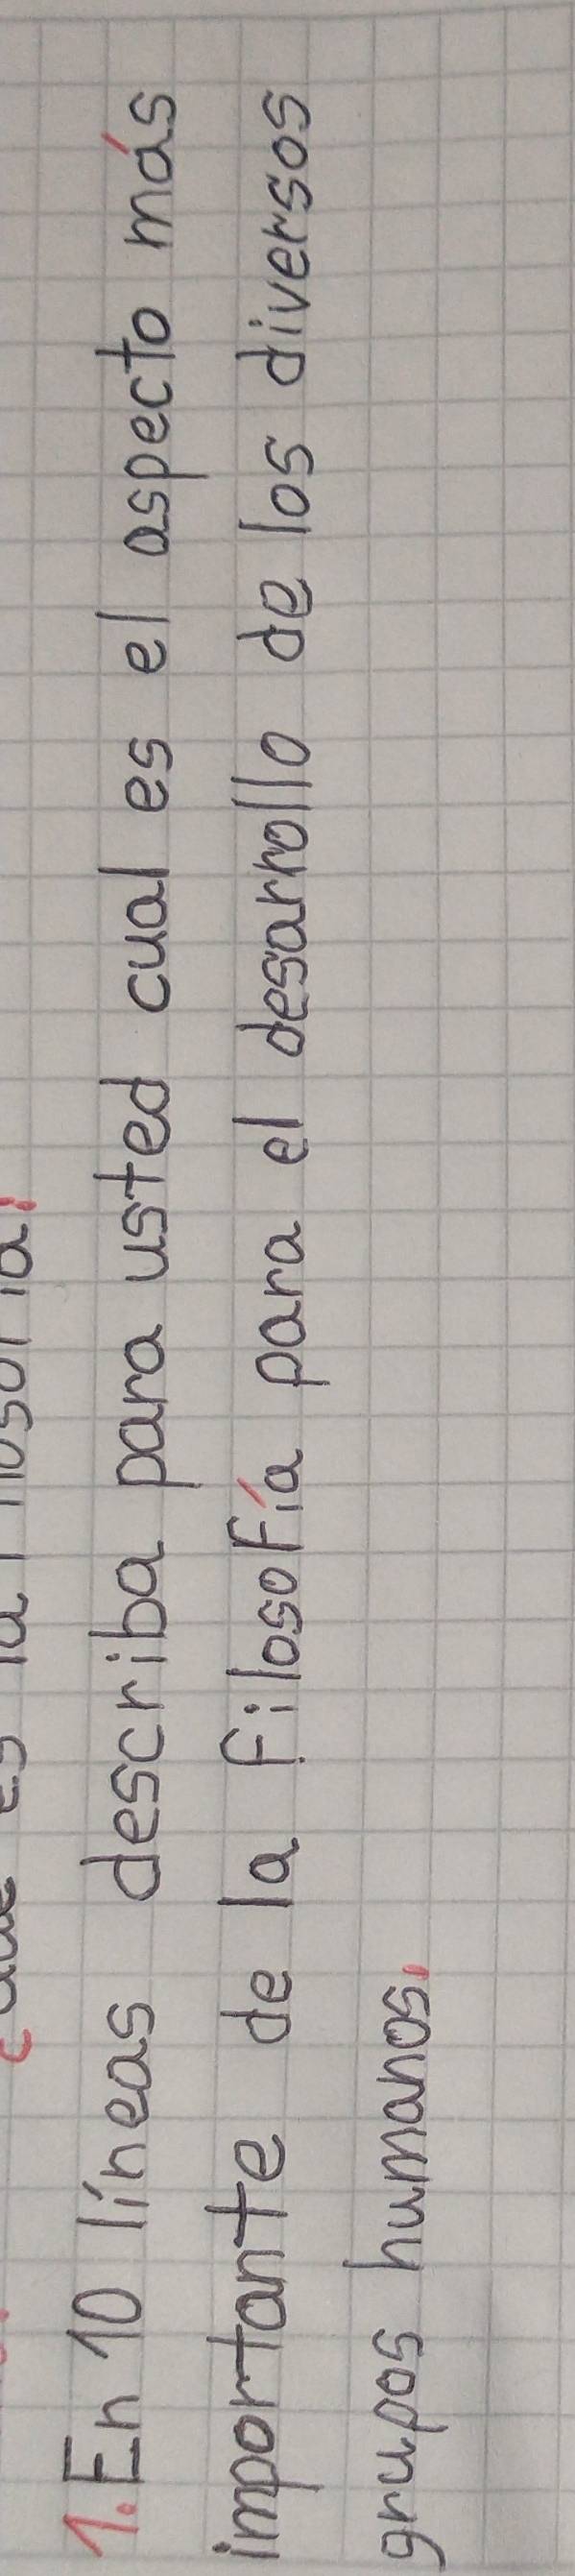 1. En 10 líneas describa para usted cual es el aspecto más
importante de la Filosofía para el desarrollo de los diversos
grupos humanos.